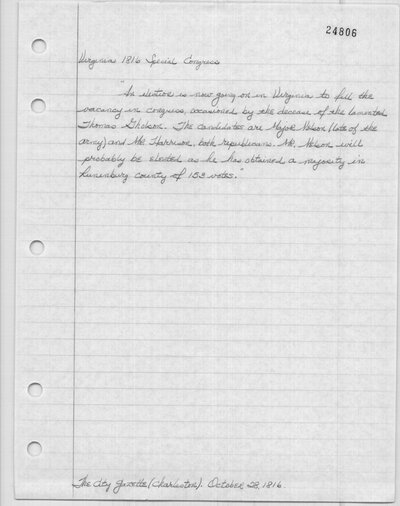 24806
Virginia 1816 Special Congress
"An election is now going on in Virginia to fill the
vacancy in congress, occasioned by the decease of the lamented
Thomas Gholson. The candidates are Major Nelson (late of the
army) and Mr. Harrison, both republicans. Mr. Nelson will
probably be elected as he has obtained a majority in
Lunenburg county of 153 votes."
The City Gazette (Charleston). October 28, 1816.